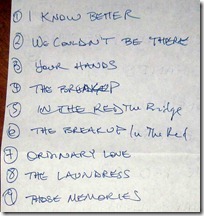 ① I KNOW BETTER
② WE COULDN'T BE THERE
③ YOUR HANDS
④ THE BREAKUP
⑤ IN THE RED The Ridge
⑥ THE BREAKUP / In The Red
⑦ ORDINARY LOVE
⑧ THE LAUNDRESS
⑨ THOSE MEMORIES